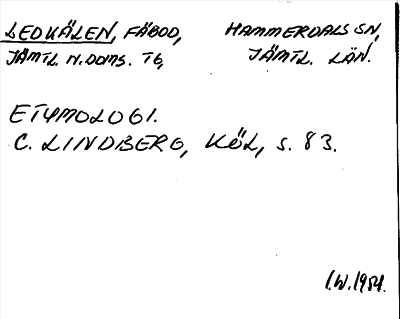 LEDKÄLEN, FÄBOD, HAMMERDALS SN,
JÄMTL. N. DOMS. TG, JÄMTL. LÄN.
ETYMOLOGI.
C. LINDBERG, KÖL, s. 83.
I.W. 1954.